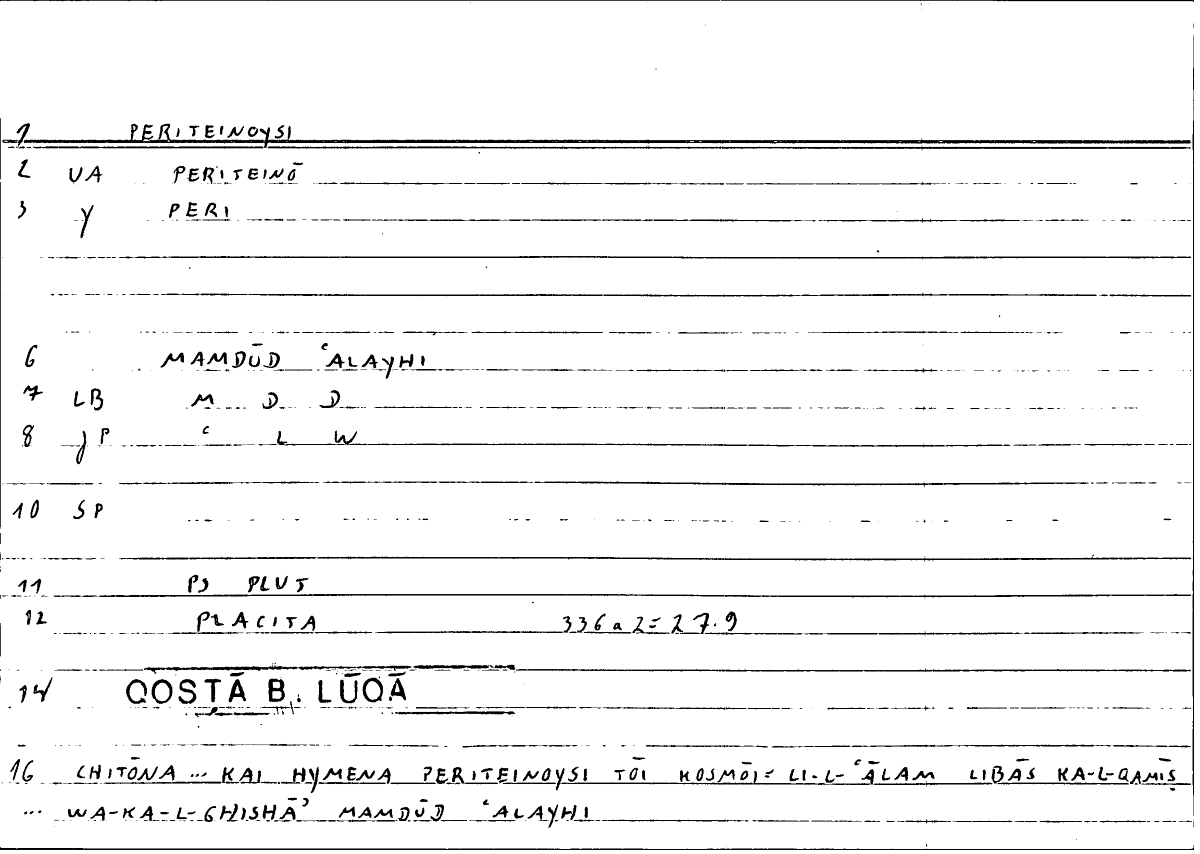 1 PERITEINOYSI
2 UA PERITEINŌ
3 Y PERI
6 MAMDŪD ʿALAYHI
7 LB M D D
8 JP ʿ L W
10 SP
11 PS PLUT
12 PLACITA 336a2=27.9
14 QOSṬĀ B. LŪQĀ
16 CHITŌNA ... KAI HYMENA PERITEINOYSI TŌI KOSMŌI = LI-L-ʿĀLAM LIBĀS KA-L-QAMĪṢ
... WA-KA-L-GHISHĀʾ MAMDŪD ʿALAYHI